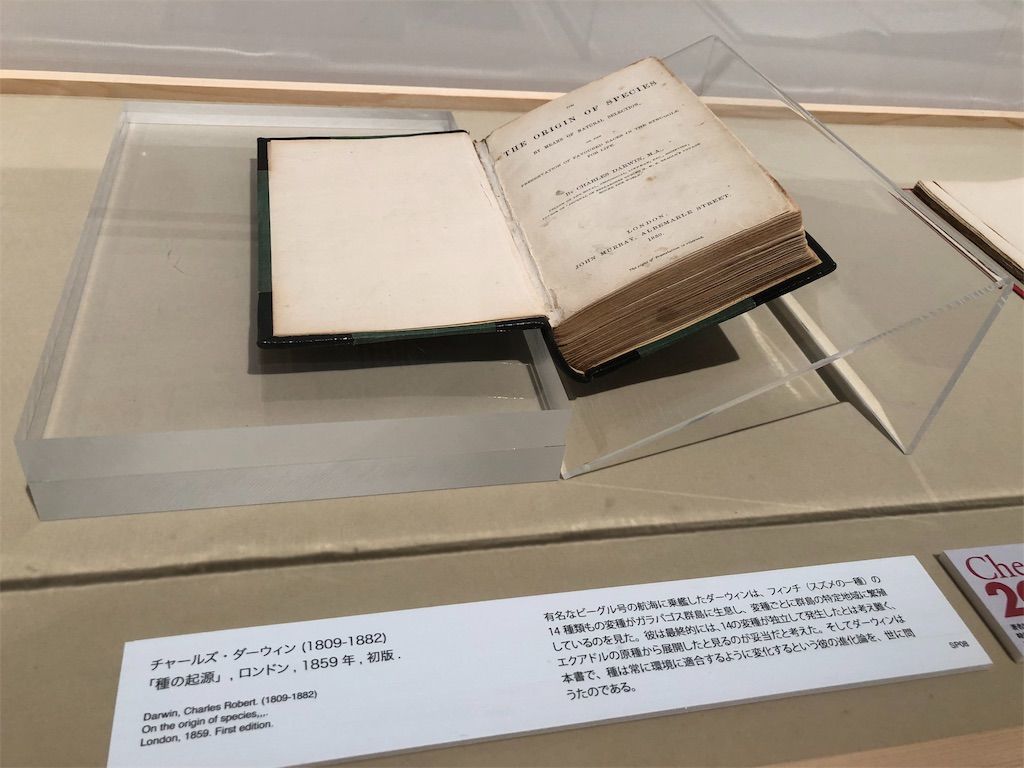 ON
THE ORIGIN OF SPECIES
BY MEANS OF NATURAL SELECTION,
OR THE
PRESERVATION OF FAVOURED RACES IN THE STRUGGLE
FOR LIFE.
By CHARLES DARWIN, M.A.,
LONDON:
JOHN MURRAY, ALBEMARLE STREET.
1859.
The right of Translation is reserved.
チャールズ・ダーウィン (1809-1882)
「種の起源」, ロンドン, 1859 年, 初版 .
Darwin, Charles Robert. (1809-1882)
On the origin of species,,,.
London, 1859. First edition.
有名なビーグル号の航海に乗艦したダーウィンは、フィンチ（スズメの一種）の
14 種類もの変種がガラパゴス群島に生息し、変種ごとに群島の特定地域に繁殖
しているのを見た。彼は最終的には、14の変種が独立して発生したとは考え難く、
エクアドルの原種から展開したと見るのが妥当だと考えた。そしてダーウィンは
本書で、種は常に環境に適合するように変化するという彼の進化論を、世に問
うたのである。
SP08
Che
2